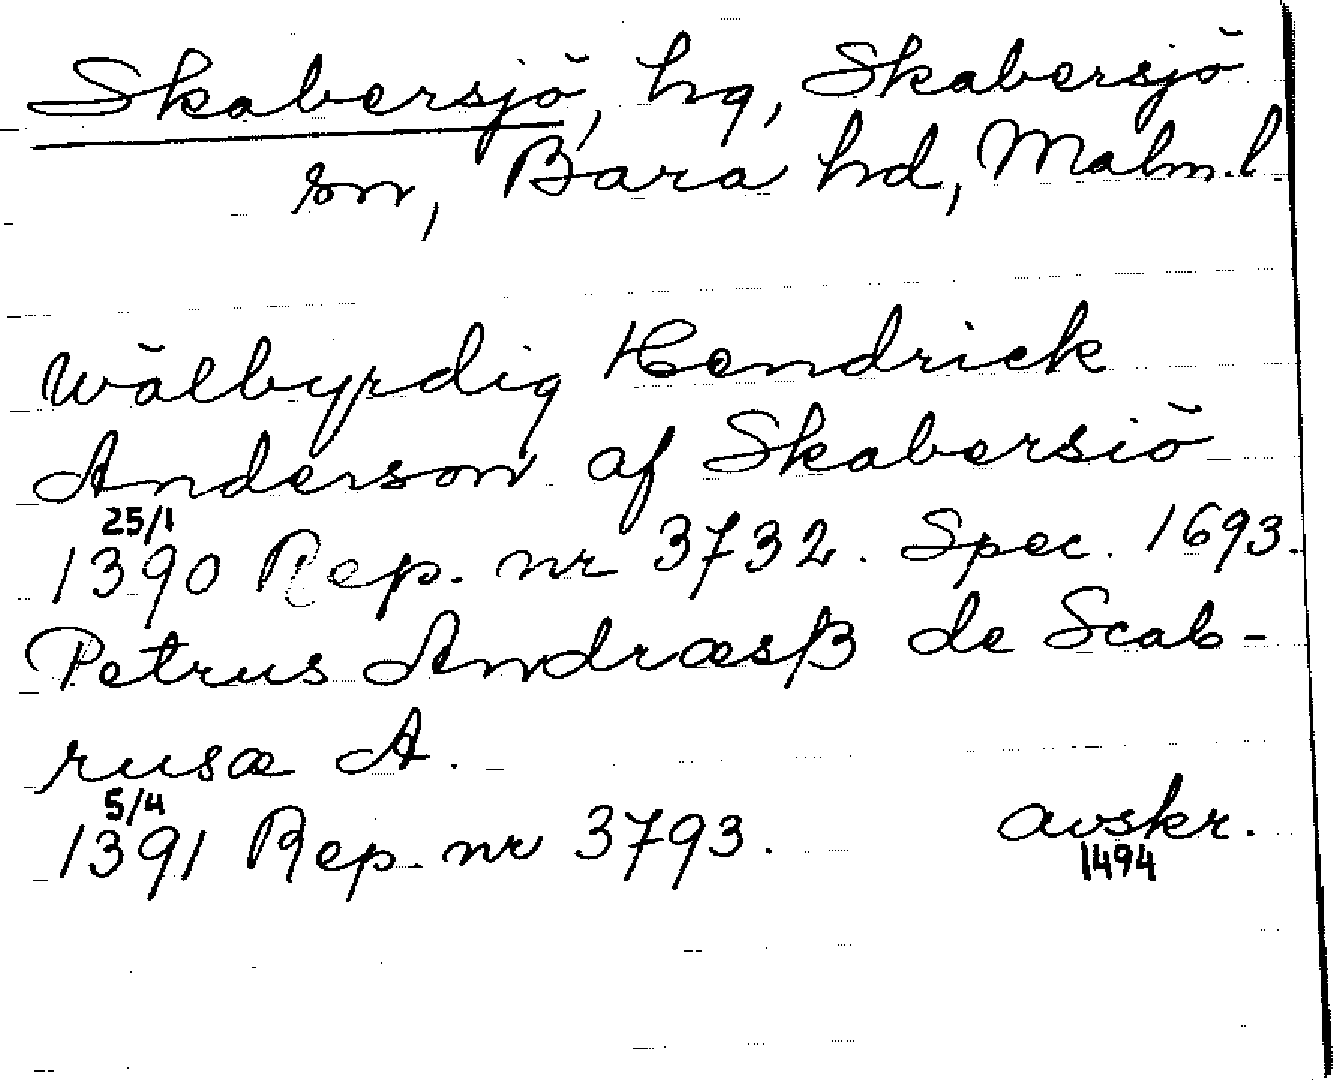 Skabersjö, hg, Skabersjö
sn, Bara hd, Malm.l.
wälbyrdig Hendrick
Anderson af Skabersiö
25/1
1390 Rep. nr 3732. Spec. 1693.
Petrus Andræsß de Scab-
rusæ A.
5/4
1391 Rep. nr 3793. avskr.
1494